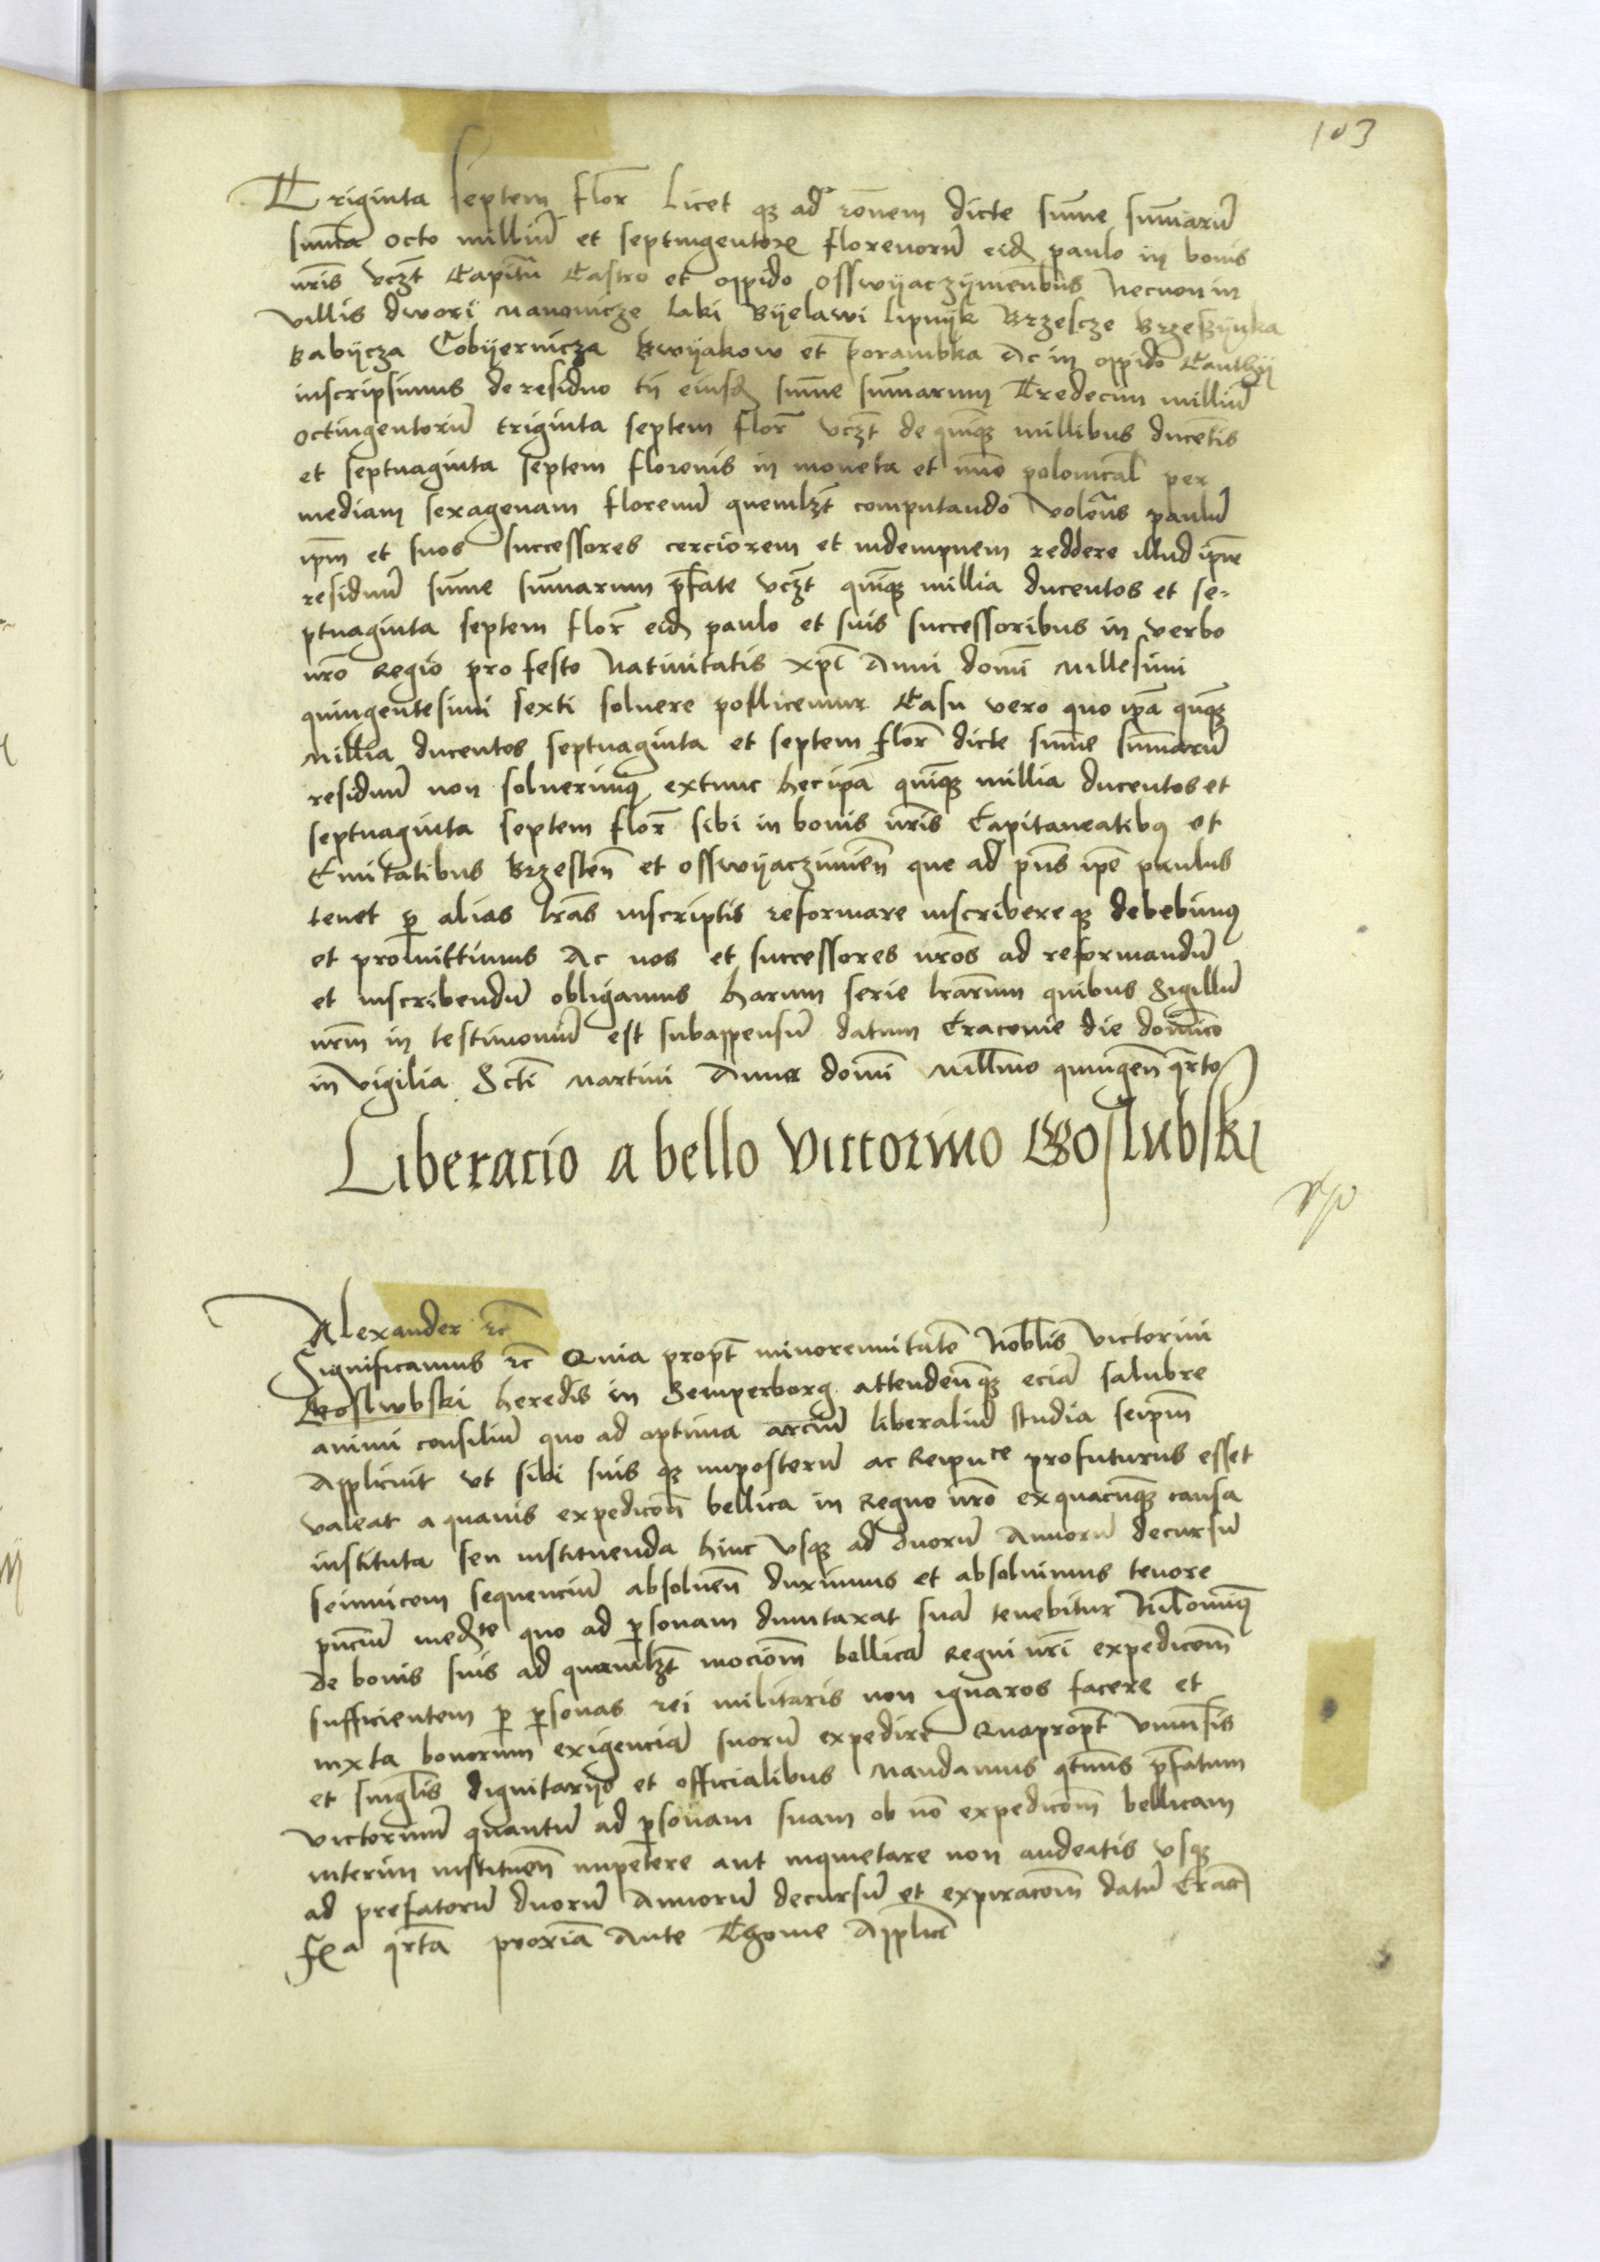 103
Triginta septem flor̄ Licet qꝫ ad rōnem dicte sum̄e sum̄arū
sum̄a octo milliū et septingentorꝝ florenorū eidꝫ paulo in bonis
nr̄is vcꝫt Capitūˀ Castro et oppido osswyaczymen̄bus Necnon in
villis dwori Manowicze laki Byelawi lipnyk Brzescze Brzeszynka
Babycza Cobyernicza Bwyakow et porambka Ac in oppido Canthy
inscripsimus de residuo tn̄ eiusdꝫ sum̄e sum̄arum Tredecim milliū
octingentorū triginta septem flor̄ vcꝫt de quīqꝫ millibus ducētis
et septuaginta septem florenis in moneta et nūo polonical̄ per
mediam sexagenam florenū quemlꝫt computando volen̄s paulū
ip̄m et suos successores cerciorem et indempnem reddere illud ip̄m
residuū sum̄e sum̄arum p̄fate vcꝫt quīqꝫ millia ducentos et se-
ptuaginta septem flor̄ eidꝫ paulo et suis successoribus in verbo
nr̄o Regio pro festo Natiuitatis xp̄i Anni domī Millesimi
quingentesimi sexti soluere pollicemur Casu vero quo ip̄a quīqꝫ
Millia ducentos septuaginta et septem flor̄ dicte sum̄e sum̄arū
residuū non soluerimꝰ extunc hec ip̄a quīqꝫ millia ducentos et
septuaginta septem flor̄ sibi in bonis nr̄is Capitaneatibꝰ et
Ciuitatibus Brzesten̄ et osswyaczimen̄ que ad pn̄s ip̄e paulus
tenet ꝑ alias lr̄as inscriptis reformare inscribereqꝫ debebimꝰ
et promittimus Ac nos et successores nr̄os ad reformandū
et inscribendū obligamus harum serie lr̄arum quibus Sigillū
nr̄m in testimoniū est subappensū datum Cracouie die domīco
in vigilia Sct̄i Martini Anno domī Mill̄imo quingen̄ qr̄to
Liberacio a bello Victorino Goslubski
Alexander ꝛc̄
Significamus ꝛc̄ Quia propt̄ minorennitatē Nobl̄is Victorini
Goslwbski heredis in Semperborg attendentesqꝫ eciā salubre
animi consiliū quo ad optima arciū liberaliū studia seip̄m
Applicuit vt sibi suisqꝫ imposterū ac Reipuce profuturus esset
valeat a quauis expedicōe bellica in Regno nr̄o ex quacūqꝫ causa
instituta seu instituenda hinc vsqꝫ ad duorū Annorū decursū
seinuicem sequenciū absoluen̄ duximus et absoluimus tenore
pn̄ciū medꝫte quo ad ꝑsonam dumtaxat suā tenebitur Nil̄ominꝰ
de bonis suis ad quamlꝫt mociōm bellicā Regni nr̄i expedicōm
sufficientem ꝑ ꝑsonas rei militaris non ignaros facere et
iuxta bonorum exigenciā suorū expedire Quapropt̄ vniuˀsis
et singl̄is dignitarijs et officialibus Mandamus qt̄nus p̄fatum
victorinū quantū ad ꝑsonam suam ob nō expedicōm bellicam
interim instituen̄ impetere aut inquietare non audeatis vsqꝫ
ad prefatorū duorū Annorū decursū et expiracōm datū Crac̄
fꝫa qr̄ta proxīa Ante Thome Appl̄ici